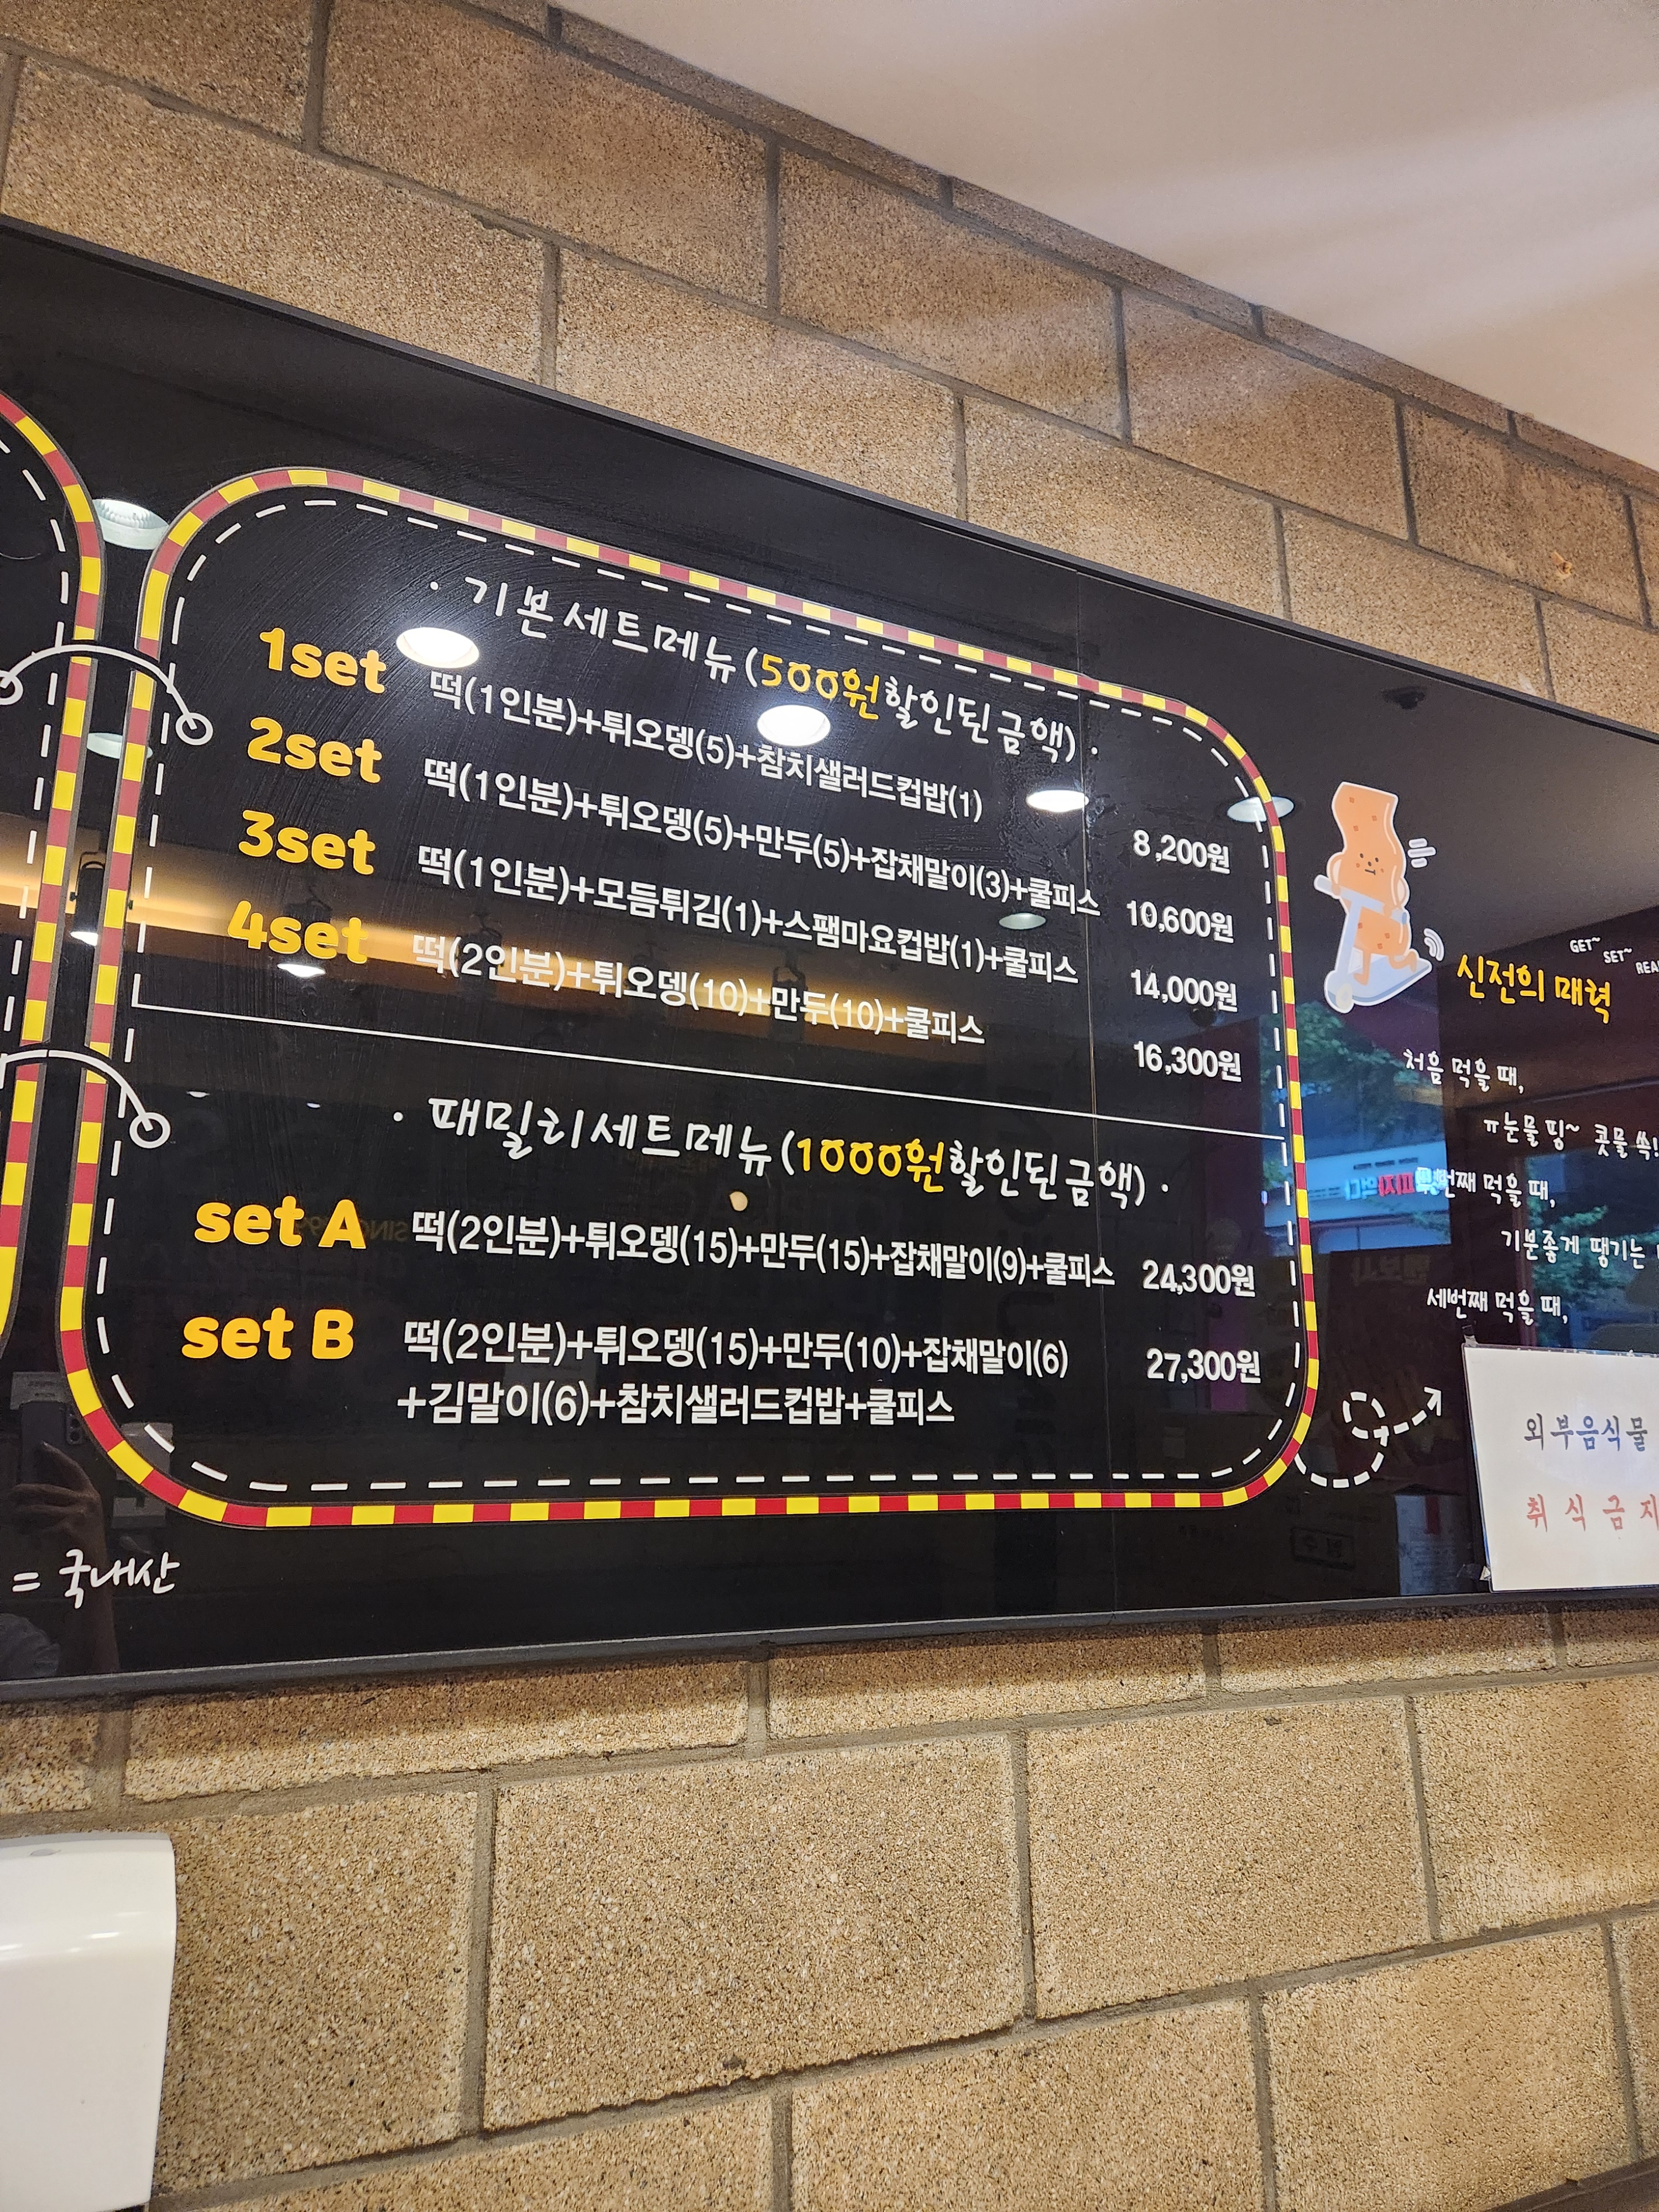 · 기본세트메뉴 (500원할인된금액) ·
1set 떡(1인분)+튀오뎅(5)+참치샐러드컵밥(1) 8,200원
2set 떡(1인분)+튀오뎅(5)+만두(5)+잡채말이(3)+쿨피스 10,600원
3set 떡(1인분)+모듬튀김(1)+스팸마요컵밥(1)+쿨피스 14,000원
4set 떡(2인분)+튀오뎅(10)+만두(10)+쿨피스 16,300원
· 패밀리세트메뉴 (1000원할인된금액) ·
set A 떡(2인분)+튀오뎅(15)+만두(15)+잡채말이(9)+쿨피스 24,300원
set B 떡(2인분)+튀오뎅(15)+만두(10)+잡채말이(6) 27,300원
+김말이(6)+참치샐러드컵밥+쿨피스
= 국내산
GET~
SET~
신전의 매력
처음 먹을 때,
ㅠ눈물 띵~ 콧물 쏙!
먹을 때,
기분좋게 땡기는
세번째 먹을 때,
외부음식물
취식금지